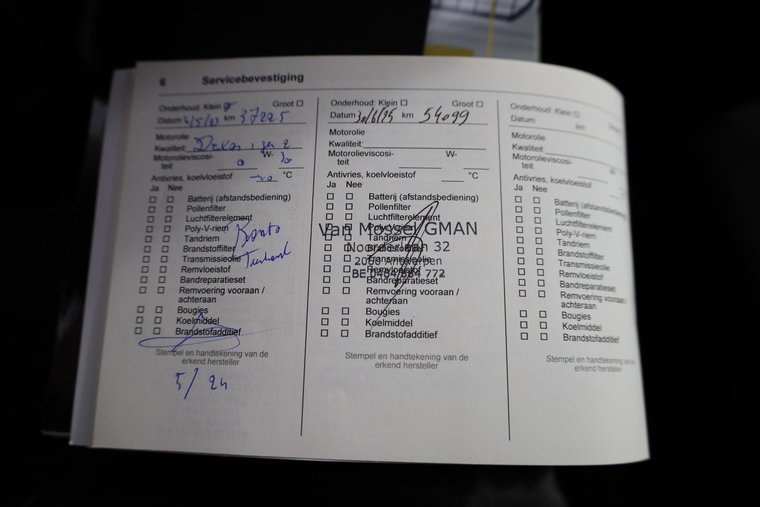 6 Servicebevestiging
Onderhoud: Klein ☐ Groot ☐
Datum km 37225
Motorolie
Kwaliteit:
Motorolieviscosi- W-
teit 0 30
Antivries, koelvloeistof °C
Ja Nee
☐ ☐ Batterij (afstandsbediening)
☐ ☐ Pollenfilter
☐ ☐ Luchtfilterelement
☐ ☐ Poly-V-riem
☐ ☐ Tandriem
☐ ☐ Brandstoffilter
☐ ☐ Transmissieolie
☐ ☐ Remvloeistof
☐ ☐ Bandreparatieset
☐ ☐ Remvoering vooraan /
achteraan
☐ ☐ Bougies
☐ ☐ Koelmiddel
☐ ☐ Brandstofadditief
Stempel en handtekening van de
erkend hersteller
5/24
Onderhoud: Klein ☐ Groot ☐
Datum 30/6/25 km 54099
Motorolie
Kwaliteit:
Motorolieviscosi- W-
teit
Antivries, koelvloeistof °C
Ja Nee
☐ ☐ Batterij (afstandsbediening)
☐ ☐ Pollenfilter
☐ ☐ Luchtfilterelement
☐ ☐ Poly-V-riem
☐ ☐ Tandriem
☐ ☐ Brandstoffilter
☐ ☐ Transmissieolie
☐ ☐ Remvloeistof
☐ ☐ Bandreparatieset
☐ ☐ Remvoering vooraan /
achteraan
☐ ☐ Bougies
☐ ☐ Koelmiddel
☐ ☐ Brandstofadditief
Van Mossel GMAN
32
Antwerpen
772
Stempel en handtekening van de
erkend hersteller
Onderhoud: Klein ☐
Datum km
Motorolie
Kwaliteit:
Motorolieviscosi-
teit
Antivries, koelvloeistof
Ja Nee
☐ ☐ Batterij (afstandsbediening)
☐ ☐ Pollenfilter
☐ ☐ Luchtfilterelement
☐ ☐ Poly-V-riem
☐ ☐ Tandriem
☐ ☐ Brandstoffilter
☐ ☐ Transmissieolie
☐ ☐ Remvloeistof
☐ ☐ Bandreparatieset
☐ ☐ Remvoering vooraan /
achteraan
☐ ☐ Bougies
☐ ☐ Koelmiddel
☐ ☐ Brandstofadditief
Stempel en handtekening van de
erkend hersteller